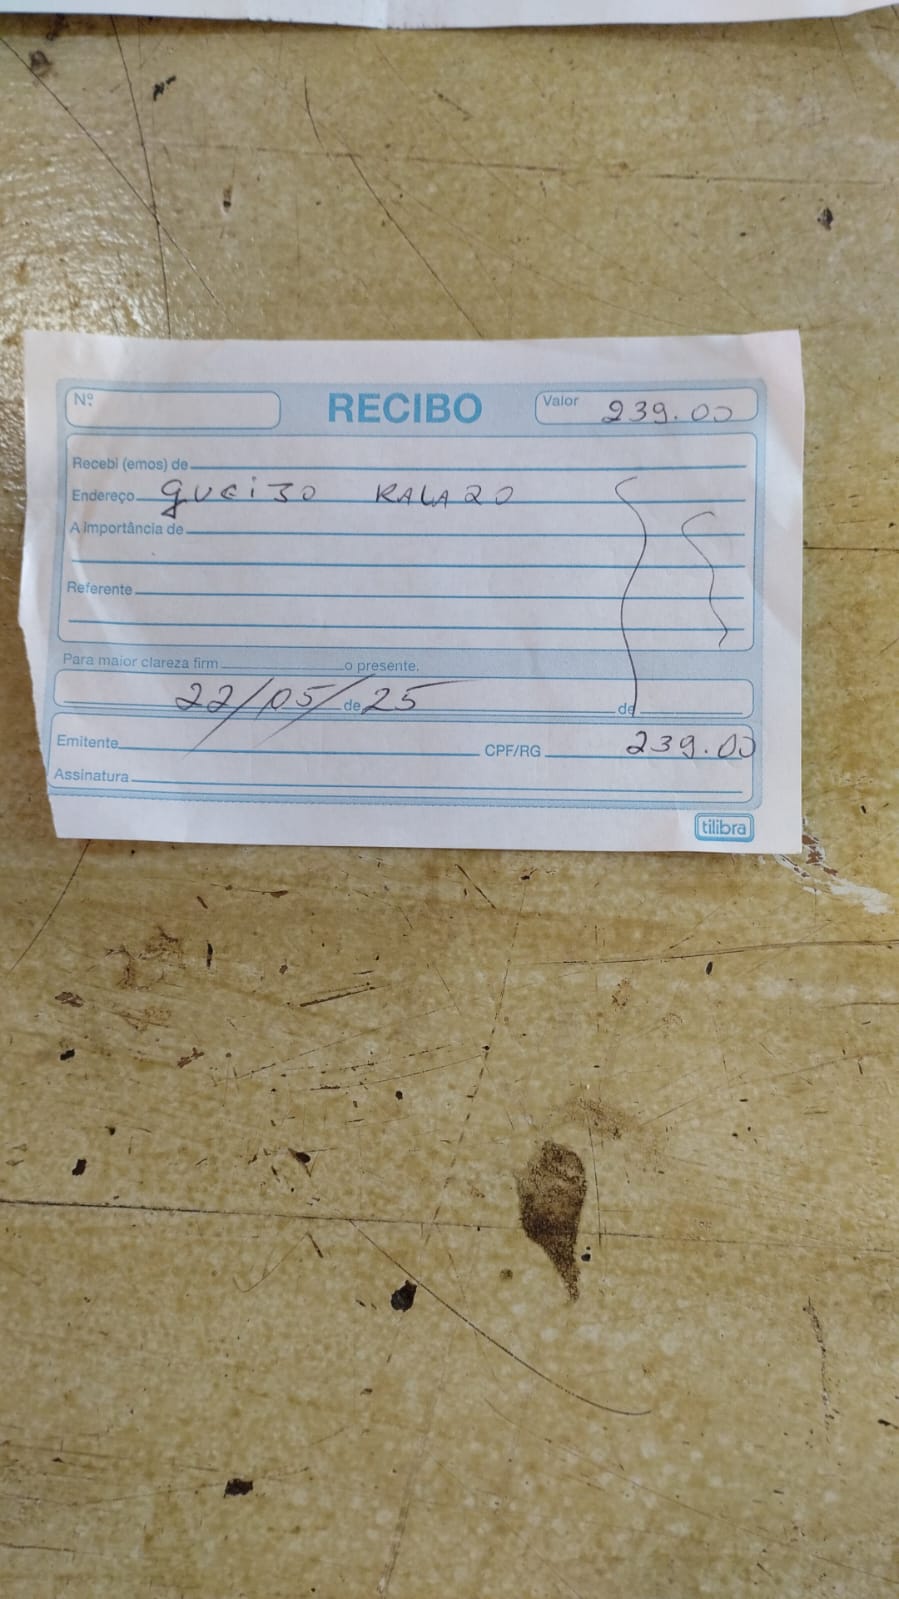 Nº
RECIBO
Valor 239.00
Recebi (emos) de
Endereço gueijo RALADO
A Importância de
Referente
Para maior clareza firm o presente.
22/05/ de 25 de
Emitente CPF/RG 239.00
Assinatura
tilibra